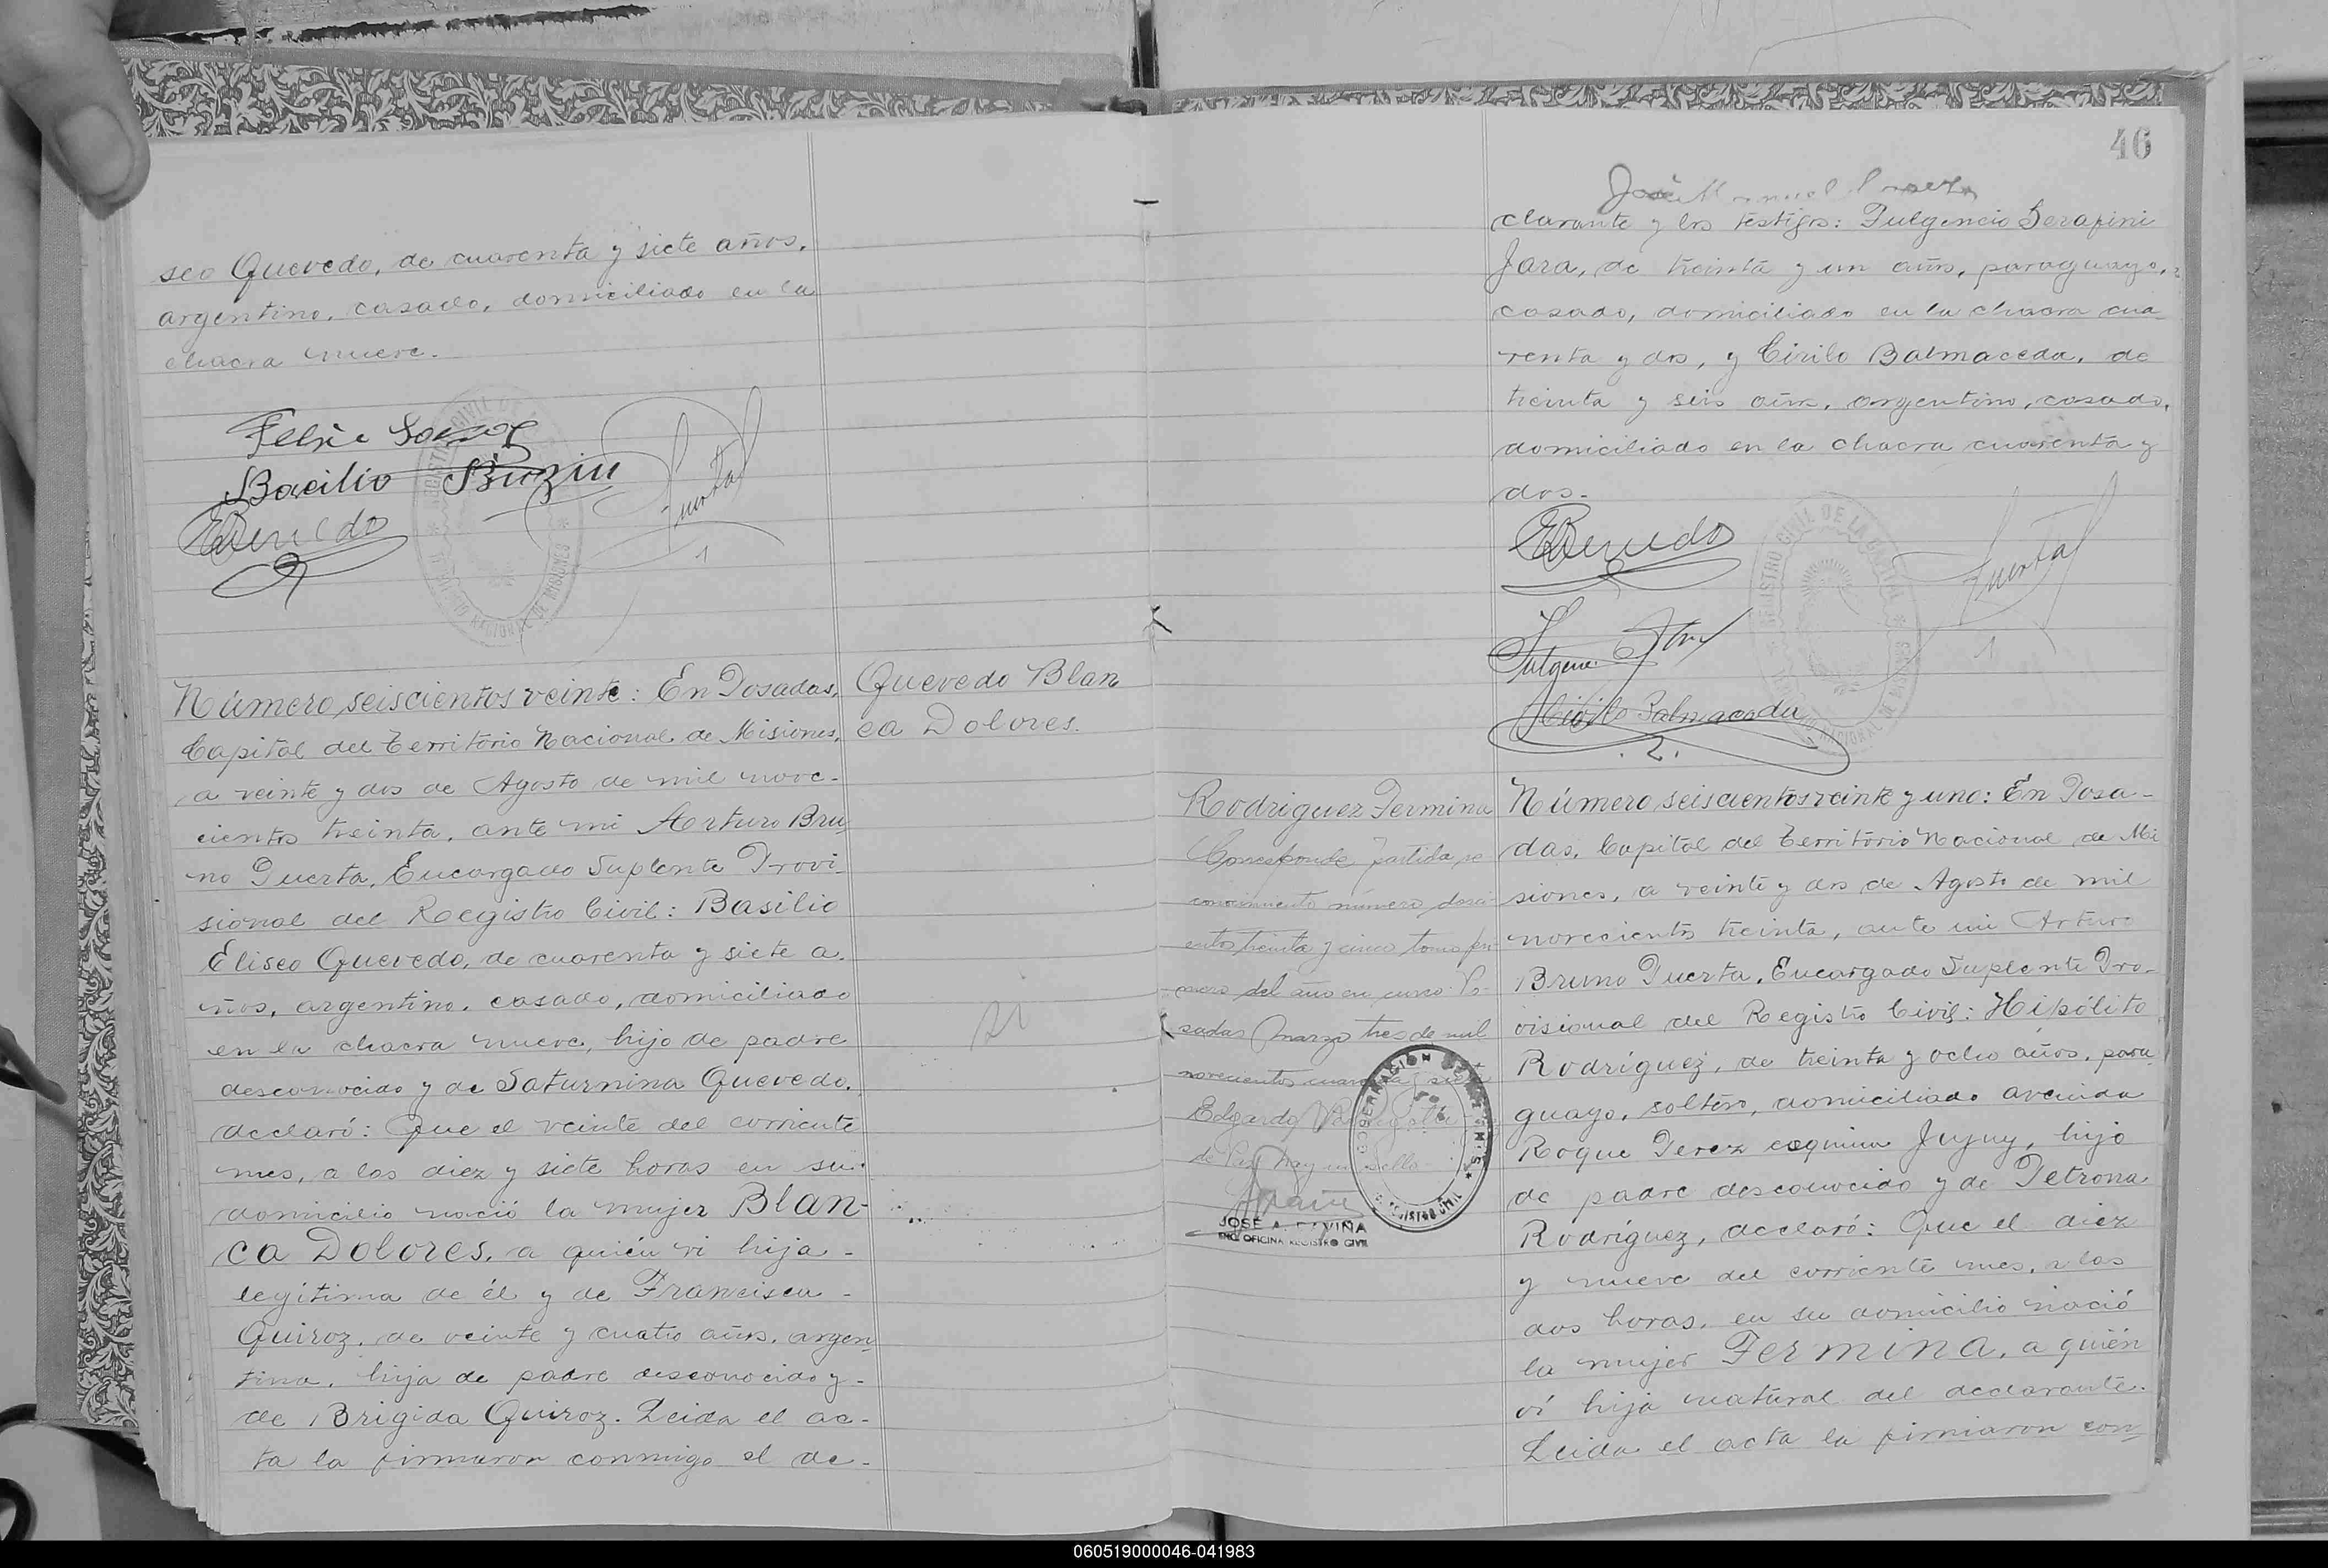 seo Quevedo, de cuarenta y siete años,
argentino, casado, domiciliado en la
chacra nueve.
Basilio
Puerta
1
Número seiscientos veinte: En Posadas,
Capital del Territorio Nacional de Misiones,
a veinte y dos de Agosto de mil nove-
cientos treinta, ante mi Arturo Bru
no Puerta, Encargado Suplente Provi-
sional del Registro Civil: Basilio
Eliseo Quevedo, de cuarenta y siete a-
ños, argentino, casado, domiciliado
en la chacra nueve, hijo de padre
desconocido y de Saturnina Quevedo,
declaró: Que el veinte del corriente
mes, a las diez y siete horas en su
domicilio nació la mujer Blan-
ca Dolores, a quién vi hija -
legítima de él y de Francisca -
Quiroz, de veinte y cuatro años, argen
tina, hija de padre desconocido y -
de Brigida Quiroz. Leida el ac-
ta la firmaron conmigo el de-
Quevedo Blan
ca Dolores.
46
José Manuel
clarante y los testigos: Fulgencio Serapini
Jara, de treinta y un años, paraguayo,
casado, domiciliado en la chacra cua-
renta y dos, y Cirilo Balmaceda, de
treinta y seis años, argentino, casado,
domiciliado en la chacra cuarenta y
dos.
REGISTRO CIVIL DE LA CAPITAL
TERRITORIO NACIONAL DE MISIONES
Puerta
1
Cirilo Balmaceda
Rodriguez Fermina
Corresponde partida re
conocimiento número dosci-
entos treinta y cinco tomo pri-
mero del año en curso. Po-
sadas marzo tres de mil
novecientos cuarenta y siete
Edgardo
de Paz hay un sello
JOSÉ A. DAVIÑA
ENC. OFICINA REGISTRO CIVIL
Número seiscientos veinte y uno: En Posa-
das, Capital del Territorio Nacional de Mi
siones, a veinte y dos de Agosto de mil
novecientos treinta, ante mi Arturo
Bruno Puerta, Encargado Suplente Pro-
visional del Registro Civil: Hipólito
Rodríguez, de treinta y ocho años, para
guayo, soltero, domiciliado avenida
Roque Perez esquina Jujuy, hijo
de padre desconocido y de Petrona
Rodríguez, declaró: Que el diez
y nueve del corriente mes, a las
dos horas, en su domicilio nació
la mujer Fermina, a quién
ví hija natural del declarante.
Leida el acta la firmaron con-
060519000046-041983